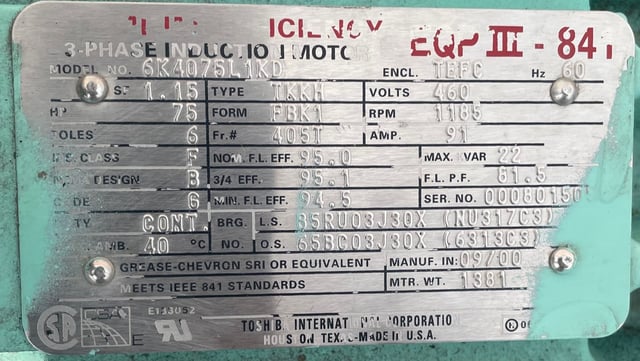 ICIENCY
3-PHASE INDUCTION MOTOR EQP III - 841
MODEL NO. 6K4075L1KD ENCL. TEFC Hz 60
SF 1.15 TYPE TKKH VOLTS 460
HP 75 FORM FBK1 RPM 1185
POLES 6 Fr.# 405T AMP. 91
INS. CLASS F NOM. F.L. EFF. 95.0 MAX. KVAR 22
DESIGN B 3/4 EFF. 95.1 F.L. P.F. 81.5
CODE 6 MIN. F.L. EFF. 94.5 SER. NO. 00080150
TY CONT. BRG. L.S. 85RU03J30X (NU317C3)
AMB. 40 °C NO. O.S. 65BC03J30X (6313C3)
GREASE-CHEVRON SRI OR EQUIVALENT MANUF. IN: 09/00
MEETS IEEE 841 STANDARDS MTR. WT. 1381
E183052
TOSHIBA INTERNATIONAL CORPORATIO
HOUSTON TEX. U.S.-MADE IN U.S.A.